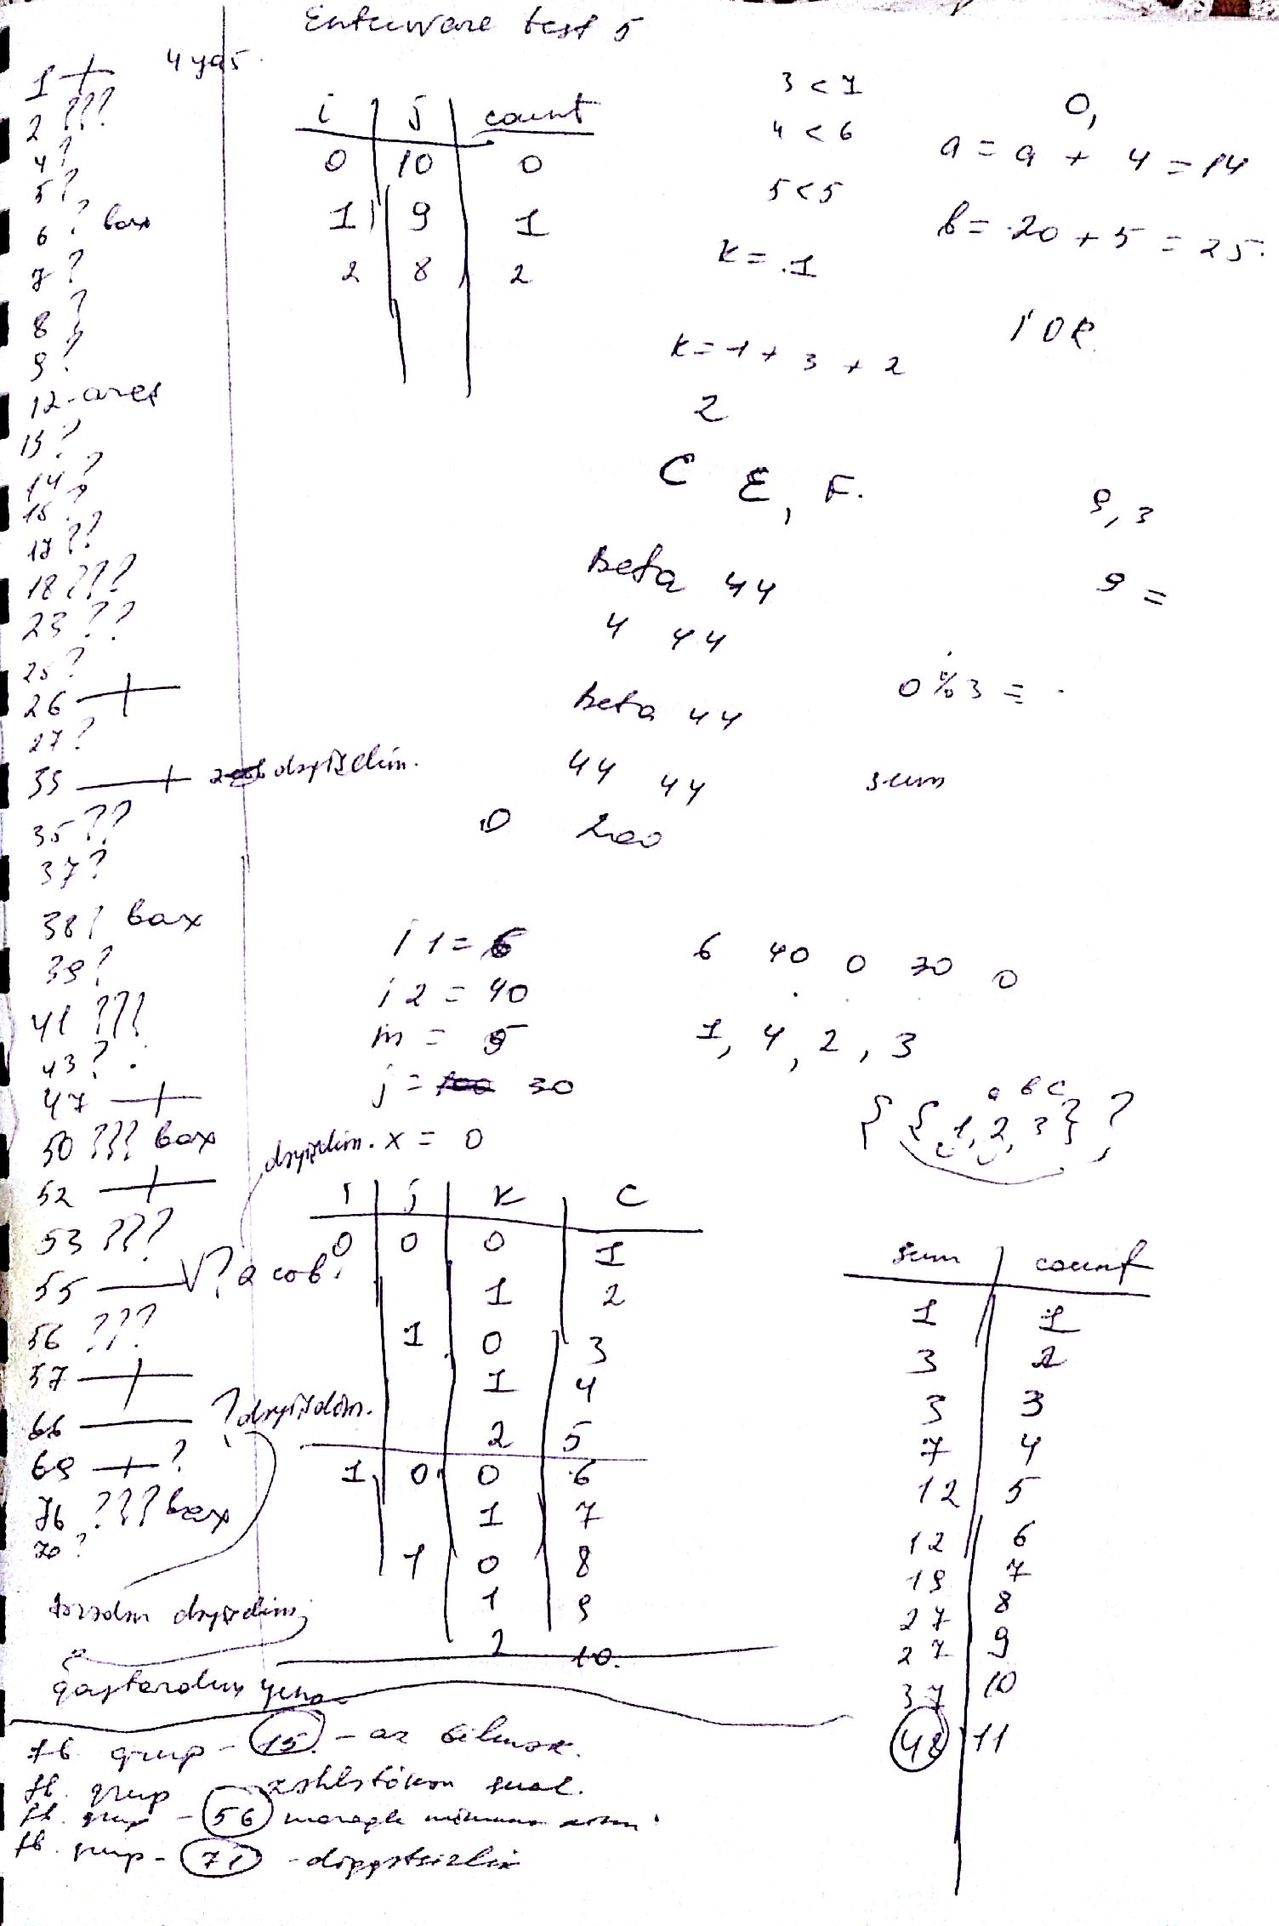 Enthuware test 5
1 +
4 ya 5.
2 ???
4 ?
5 ?
6 ? bax
7 ?
8 ?
9 ?
12-
13 ?
14 ?
15 ?
17 ??
18 ???
23 ??
25 ?
26 +
27 ?
33 + dəyişdim.
35 ??
37 ?
38 ? bax
39 ?
41 ???
43 ? .
47 +
50 ??? bax
52 +
53 ???
55 V ? 2 cob ?
56 ???
57 +
66 ? dəyişdim.
69 + ?
76 ??? bax
70 ?
dəyişdim
i | j | count
0 | 10 | 0
1 | 9 | 1
2 | 8 | 2
3 < 7
4 < 6
5 < 5
k = .1
k = -1 + 3 + 2
2
C E, F.
0,
a = a + 4 = 14
b = 20 + 5 = 25.
9, 3
9 =
0 % 3 =
sum
Beta 44
4 44
Beta 44
44 44
0 200
i1 = 6
i2 = 40
m = 5
j = 30
dəyişdim. x = 0
6 40 0 30 0
1, 4, 2, 3
a b c
{ { 1, 2, 3 } ?
i | j | k | C
0 | 0 | 0 | 1
1 | 2
1 | 0 | 3
1 | 4
2 | 5
1 | 0 | 0 | 6
1 | 7
1 | 0 | 8
1 | 9
2 | 10.
sum | count
1 | 1
3 | 2
3 | 3
7 | 4
12 | 5
12 | 6
19 | 7
27 | 8
27 | 9
37 | 10
48 | 11
fb. grup - 15. - az bilmək.
fb. grup sual.
fb. grup - 56
fb. grup - 71 - diqqətsizlik